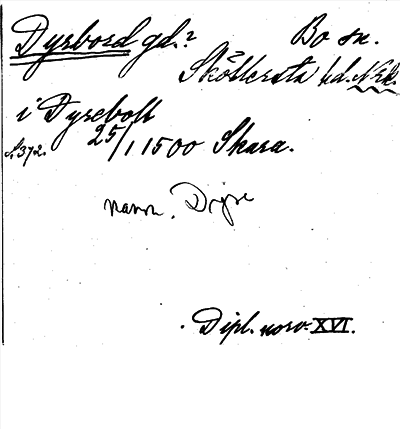 Dyrbord gd.? Bo sn.
Sköllersta hd. Nrk.
i Dyrebolt
S. 372. 25/1 1500 Skara.
namn. Dyre
Dipl. norv. XVI.